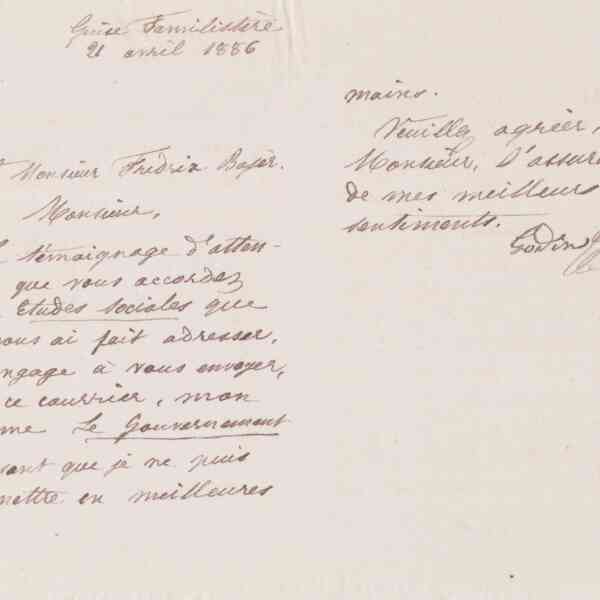 Guise Familistère
21 avril 1886
Monsieur Fredrix Bajer.
Monsieur,
témoignage d'atten-
que vous accordez
Etudes sociales que
vous ai fait adresser,
engage à vous envoyer,
ce courrier, mon
me Le Gouvernement
sant que je ne puis
mettre en meilleures
mains.
Veuillez agréer,
Monsieur, l'assur
de mes meilleurs
sentiments.
Godin